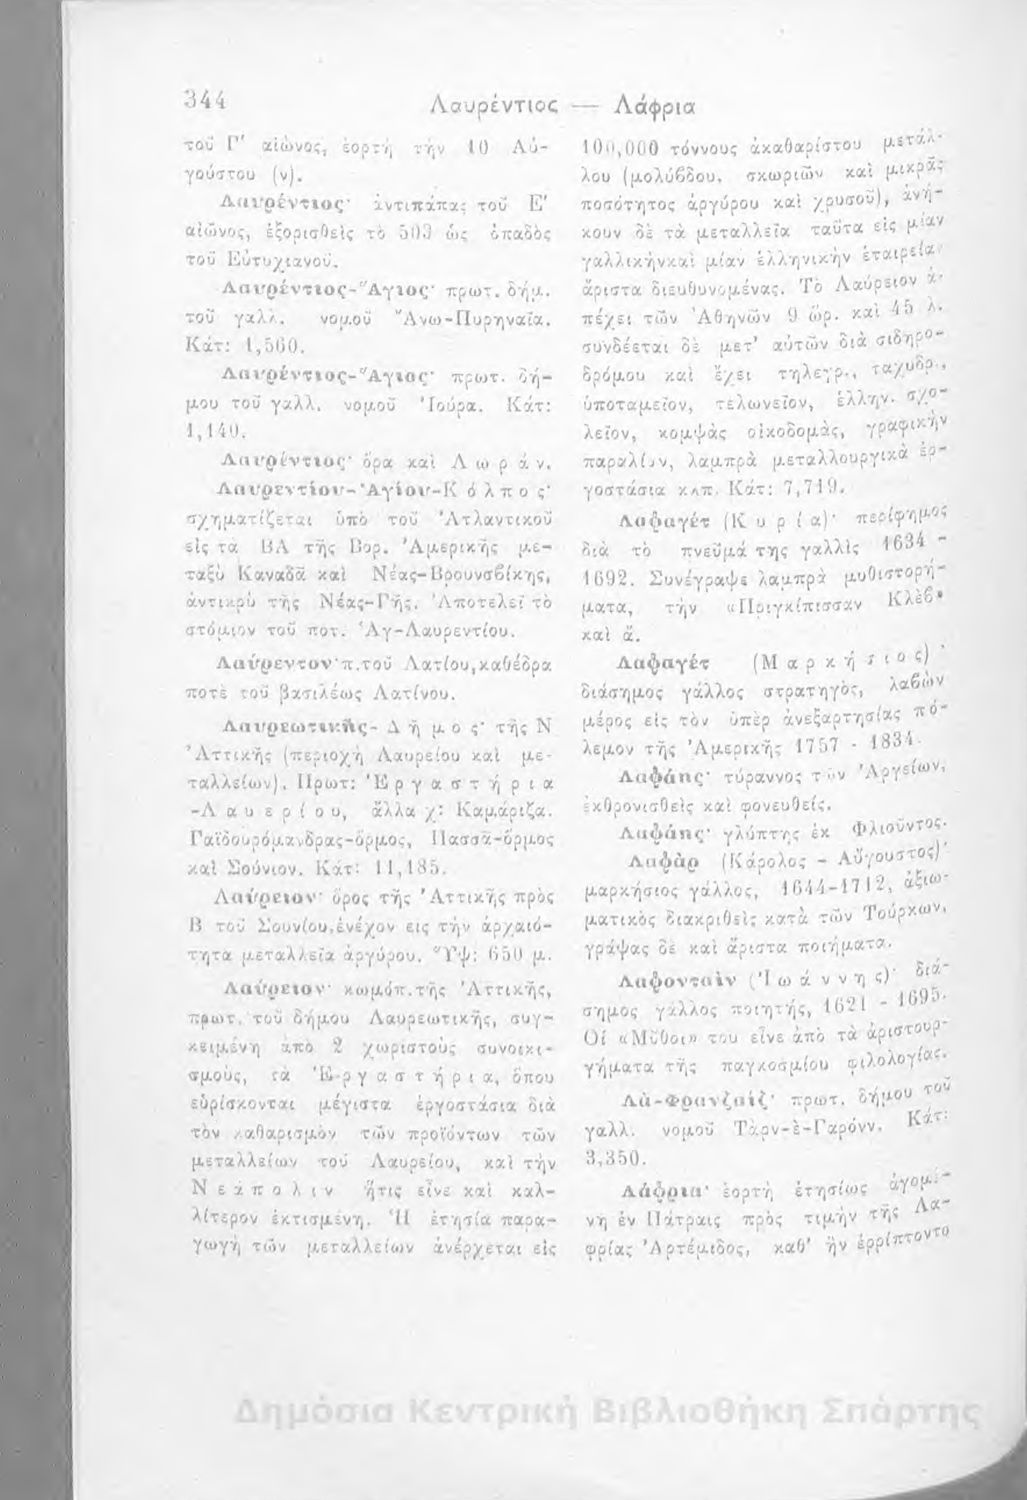 344
Λαυρέντιος — Λάφρια
τοῦ Γ' αἰῶνος, ἑορτὴ τὴν 10 Αὐ-
γούστου (ν).
Λαυρέντιος· ἀντιπάπας τοῦ Ε'
αἰῶνος, ἐξορισθεὶς τὸ 503 ὡς ὀπαδὸς
τοῦ Εὐτυχιανοῦ.
Λαυρέντιος-Ἅγιος· πρωτ. δήμ.
τοῦ γαλλ. νομοῦ Ἄνω-Πυρηναῖα.
Κάτ: 1,560.
Λαυρέντιος-Ἅγιος· πρωτ. δή-
μου τοῦ γαλλ. νομοῦ Ἰούρα. Κάτ:
1,140.
Λαυρέντιος· ὅρα καὶ Λωράν.
Λαυρεντίου-Ἁγίου-Κόλπος·
σχηματίζεται ὑπὸ τοῦ Ἀτλαντικοῦ
εἰς τὰ ΒΑ τῆς Βορ. Ἀμερικῆς με-
ταξὺ Καναδᾶ καὶ Νέας-Βρουνσβίκης,
ἀντικρὺ τῆς Νέας-Γῆς. Ἀποτελεῖ τὸ
στόμιον τοῦ ποτ. Ἁγ-Λαυρεντίου.
Λαύρεντον·π.τοῦ Λατίου,καθέδρα
ποτὲ τοῦ βασιλέως Λατίνου.
Λαυρεωτικῆς-Δῆμος· τῆς Ν
Ἀττικῆς (περιοχὴ Λαυρείου καὶ με-
ταλλείων). Πρωτ: Ἐργαστήρια
-Λαυερίου, ἄλλα χ: Καμάριζα.
Γαϊδουρόμανδρας-ὅρμος, Πασσᾶ-ὅρμος
καὶ Σούνιον. Κάτ: 11,185.
Λαύρειον· ὄρος τῆς Ἀττικῆς πρὸς
Β τοῦ Σουνίου,ἐνέχον εἰς τὴν ἀρχαιό-
τητα μεταλλεῖα ἀργύρου. Ὕψ: 650 μ.
Λαύρειον· κωμόπ.τῆς Ἀττικῆς,
πρωτ. τοῦ δήμου Λαυρεωτικῆς, συγ-
κειμένη ἀπὸ 2 χωριστοὺς συνοικι-
σμούς, τὰ Ἐργαστήρια, ὅπου
εὑρίσκονται μέγιστα ἐργοστάσια διὰ
τὸν καθαρισμὸν τῶν προϊόντων τῶν
μεταλλείων τοῦ Λαυρείου, καὶ τὴν
Νεάπολιν ἥτις εἶνε καὶ καλ-
λίτερον ἐκτισμένη. Ἡ ἐτησία παρα-
γωγὴ τῶν μεταλλείων ἀνέρχεται εἰς
100,000 τόννους ἀκαθαρίστου μετάλ-
λου (μολύβδου, σκωριῶν καὶ μικρᾶς
ποσότητος ἀργύρου καὶ χρυσοῦ), ἀνή-
κουν δὲ τὰ μεταλλεῖα ταῦτα εἰς μίαν
γαλλικὴνκαὶ μίαν ἑλληνικὴν ἑταιρεία·
ἄριστα διευθυνομένας. Τὸ Λαύρειον ἀ-
πέχει τῶν Ἀθηνῶν 9 ὡρ. καὶ 45 λ.
συνδέεται δὲ μετ' αὐτῶν διὰ σιδηρο-
δρόμου καὶ ἔχει τηλεγρ., ταχυδρ.,
ὑποταμεῖον, τελωνεῖον, ἑλλην. σχο-
λεῖον, κομψὰς οἰκοδομάς, γραφικὴν
παραλίαν, λαμπρὰ μεταλλουργικὰ ἐρ-
γοστάσια κλπ. Κάτ: 7,719.
Λαφαγέτ (Κυρία)· περίφημος
διὰ τὸ πνεῦμά της γαλλὶς 1634 -
1692. Συνέγραψε λαμπρὰ μυθιστορή-
ματα, τὴν «Πριγκίπισσαν Κλὲβ»
καὶ ἄ.
Λαφαγέτ (Μαρκήσιος)·
διάσημος γάλλος στρατηγός, λαβὼν
μέρος εἰς τὸν ὑπὲρ ἀνεξαρτησίας πό-
λεμον τῆς Ἀμερικῆς 1757 - 1834.
Λαφάης· τύραννος τῶν Ἀργείων,
ἐκθρονισθεὶς καὶ φονευθείς.
Λαφάης· γλύπτης ἐκ Φλιοῦντος.
Λαφὰρ (Κάρολος - Αὔγουστος)·
μαρκήσιος γάλλος, 1644-1712, ἀξιω-
ματικὸς διακριθεὶς κατὰ τῶν Τούρκων,
γράψας δὲ καὶ ἄριστα ποιήματα.
Λαφονταὶν (Ἰωάννης)· διά-
σημος γάλλος ποιητής, 1621 - 1695.
Οἱ «Μῦθοι» του εἶνε ἀπὸ τὰ ἀριστουρ-
γήματα τῆς παγκοσμίου φιλολογίας.
Λὰ-Φρανζαὶζ· πρωτ. δήμου τοῦ
γαλλ. νομοῦ Τὰρν-ὲ-Γαρόνν. Κάτ:
3,350.
Λάφρια· ἑορτὴ ἐτησίως ἀγομέ-
νη ἐν Πάτραις πρὸς τιμὴν τῆς Λα-
φρίας Ἀρτέμιδος, καθ' ἣν ἐρρίπτοντο
Δημόσια Κεντρική Βιβλιοθήκη Σπάρτης